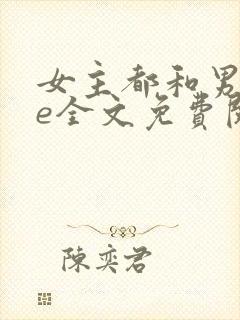 女主都和男
e全文免費閱
陳奕君